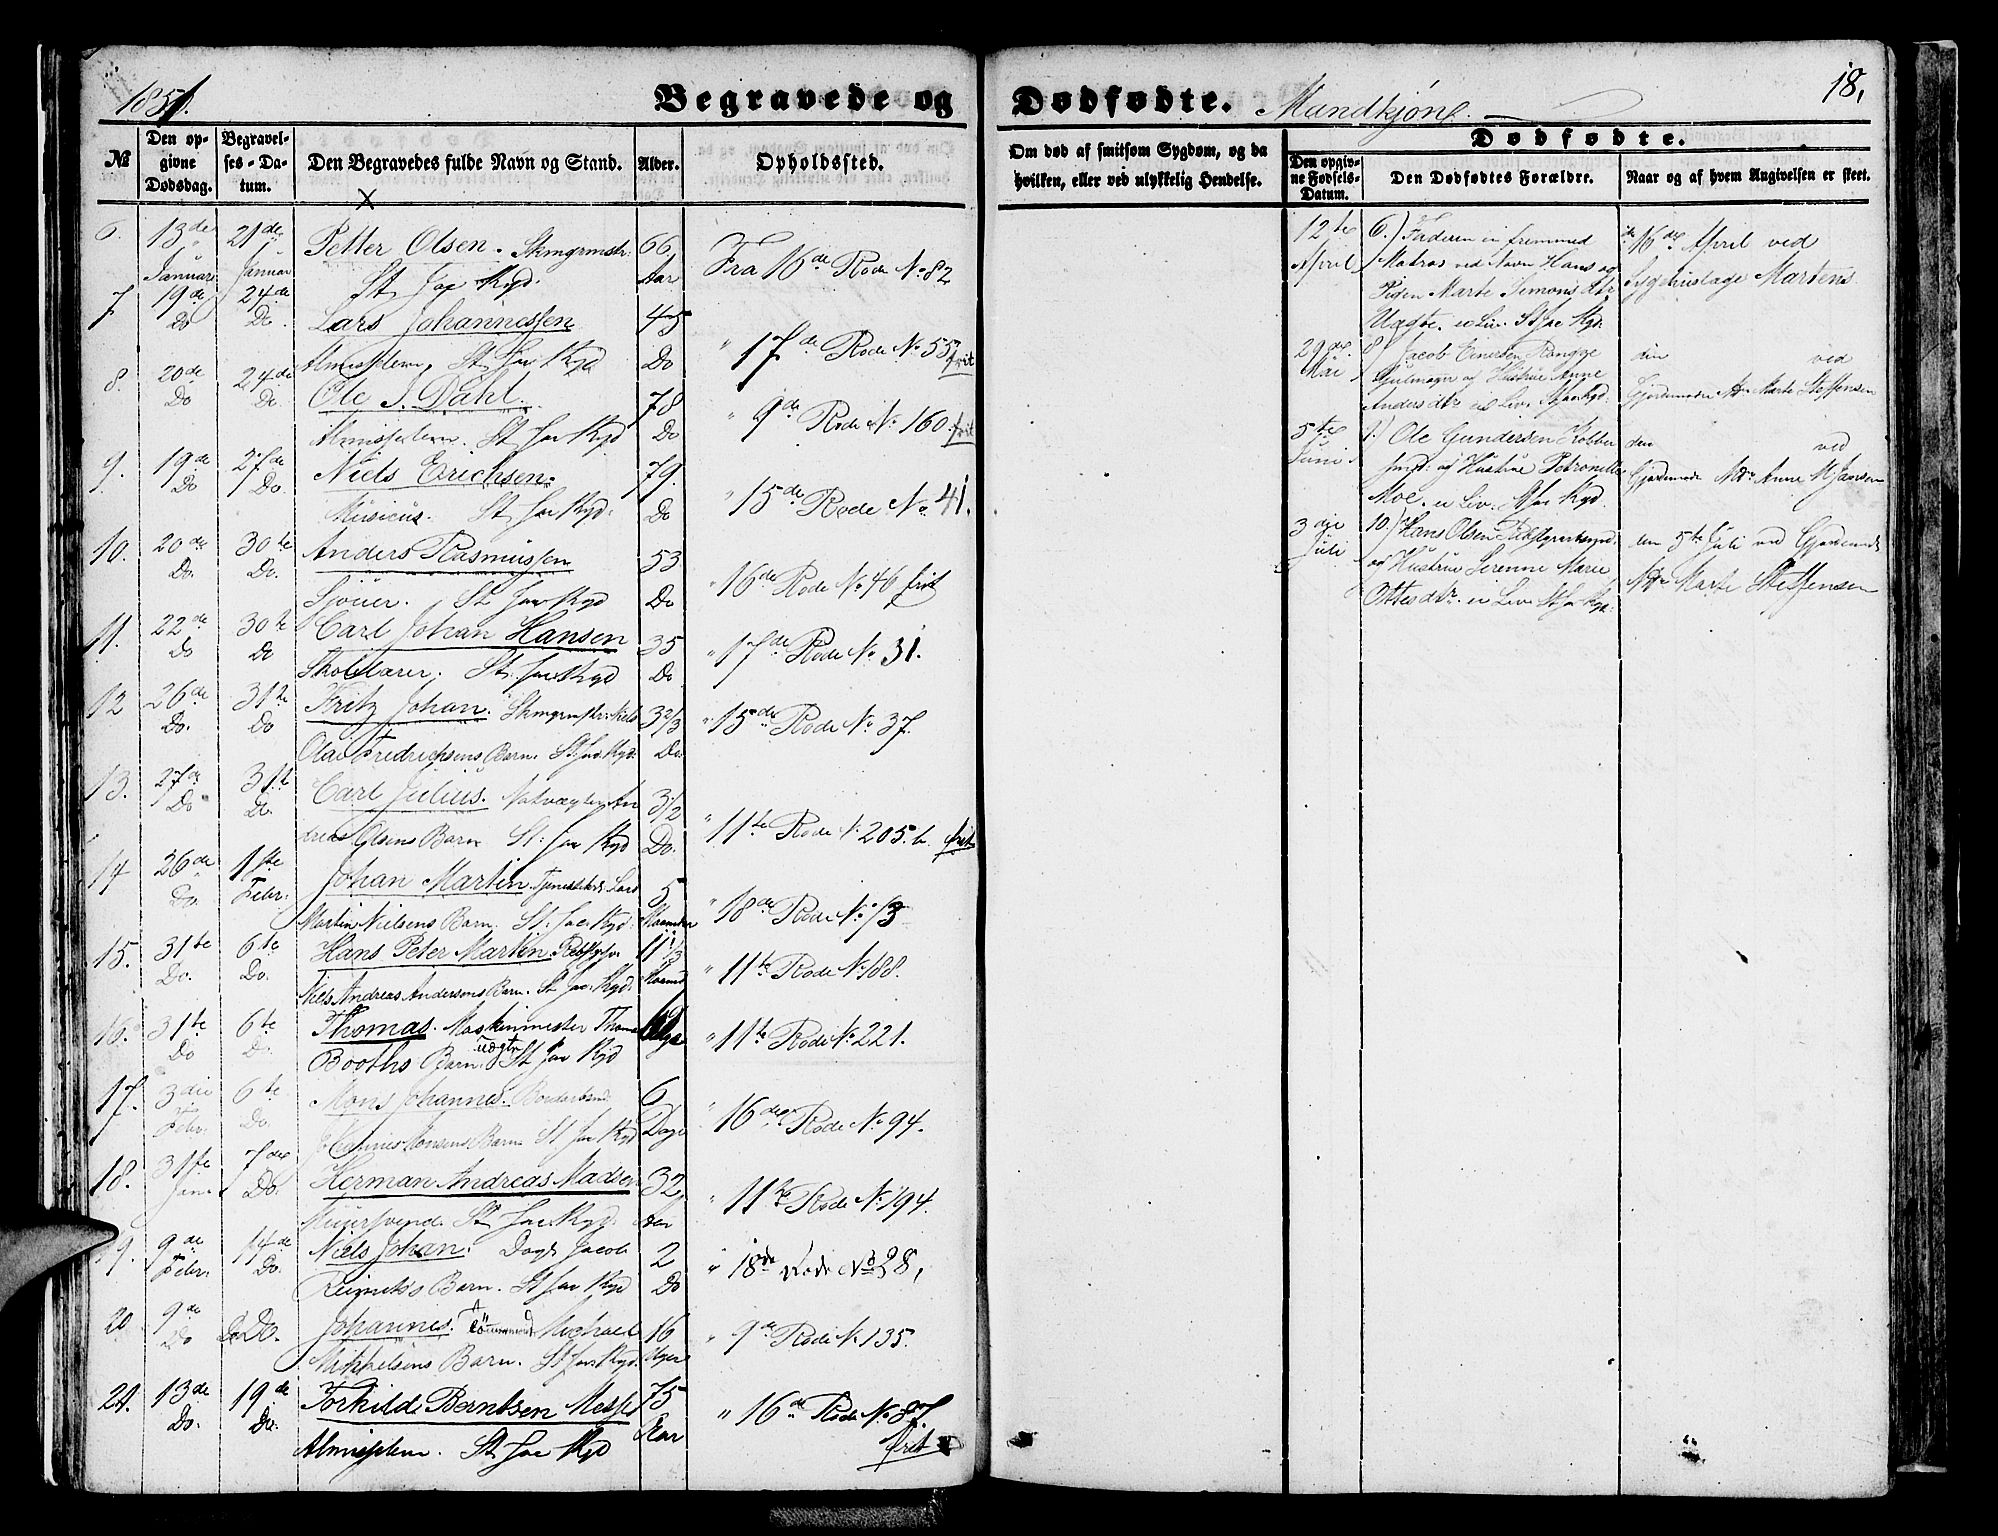 1851.
Begravede og
Dødfødte. Mandkjøn.
18.
No
Den opgivne Dødsdag.
Begravelses-Datum.
Den Begravedes fulde Navn og Stand.
Alder.
Opholdssted.
Om død af smitsom Sygdom, og da hvilken, eller ved ulykkelig Hendelse.
Dødfødte.
Den opgivne Fødsels-Datum.
Den Dødfødtes Forældre.
Naar og af hvem Angivelsen er skeet.
x
6. 13de Januar 21de Januar Petter Olsen. 66 Aar Fra 16de Rode No 82
St Jac Kgd.
7. 19de Do 24de Do. Lars Johannessen 45 Do " 17de Rode No 55 frit
Almisselem, St Jac Kgd
8. 20de Do 24de Do. Ole J. Dahl. 78 Do " 9de Rode No 160. frit
Almisselem. St Jac Kgd
9. 19de Do 27de Do. Niels Erichsen. 79. Do " 15de Rode No 41.
Musicus. St Jac Kgd.
10. 20de Do. 30te Do. Anders Rasmussen 53 Do " 16de Rode No 46 frit
Sjouer. St Jac Kgd
11. 22de Do 30te Do Carl Johan Hansen 35 Do " 17de Rode No 31.
Skolelærer. St Jac Kgd
12 26de Do. 31te Do Fritz Johan. Niels 3 2/3 Do " 15de Rode No 37.
Olai Fredrichsens Barn. St Jac. Kgd.
13. 27de Do 31te Do. Carl Julius. An 3 1/2 Do. " 11te Rode No 205.b. frit
dreas Olsens Barn St: Jac Kgd
14 26de Do. 1ste Febr. Johan Martin. Lars 5 Maaneder " 18de Rode No 13
Martin Nielsens Barn. St. Jac. Kgd.
15. 31te Do. 6te Do. Hans Peter Martin 11 1/3 Maaned " 11te Rode No 188.
Niels Andreas Andersens Barn. St Jac. Kgd.
16. 31te Do 6te D. Thomas. Maskinmester Thomas " 11te Rode No 221.
Booths Barn. udgte St Jac Kgd
17. 3die Febr. 6te Do. Mons Johannes. 6 Dage " 16de Rode No 94.
Johannes Monsens Barn St Jac Kgd
18. 31te Jan. 7de Do. Herman Andreas Madsen 32 Aar " 11te Rode No 194.
Muursvend. St Jac Kgd.
19. 9de Febr. 14de Do. Niels Johan. Dagk Jacob 2 Do " 18de Rode No 28,
Reimers Barn. St Jac Kgd
20 9de Do Do. Johannes. Tømmermd Michael 16 Uger " 9de Rode No 135.
Mikkelsens Barn. St Jac Kgd.
21. 13de Do. 19de Do. Torkild Berntsen 75 Aar " 16de Rode No 87. frit
Almisselem. St Jac Kgd
12te April 6.) Faderen en fremmed 16de April ved
Matros ved Navn Hans og Sygehuslæge Martens
Pigen Marte Simonsdtr
Uægte. St Jac Kgd.
29de Mai 8) Jacob Einersen den ved
Gulmager og Hustrue Anne Gjordemoder Marte Steffensen
Andersdtr St Jac Kgd.
5te Juni 9.) Ole Gundersen Kobber den ved
smed og Hustrue Petronelle Gjordemoder Anne M Jansen
Moe. St Jac Kgd.
3die Juli 10.) Hans Olsen den 5te Juli ved Gjordemoder
og Hustrue Serenne Marie Marte Steffensen
Ottesdtr. St Jac Kgd.